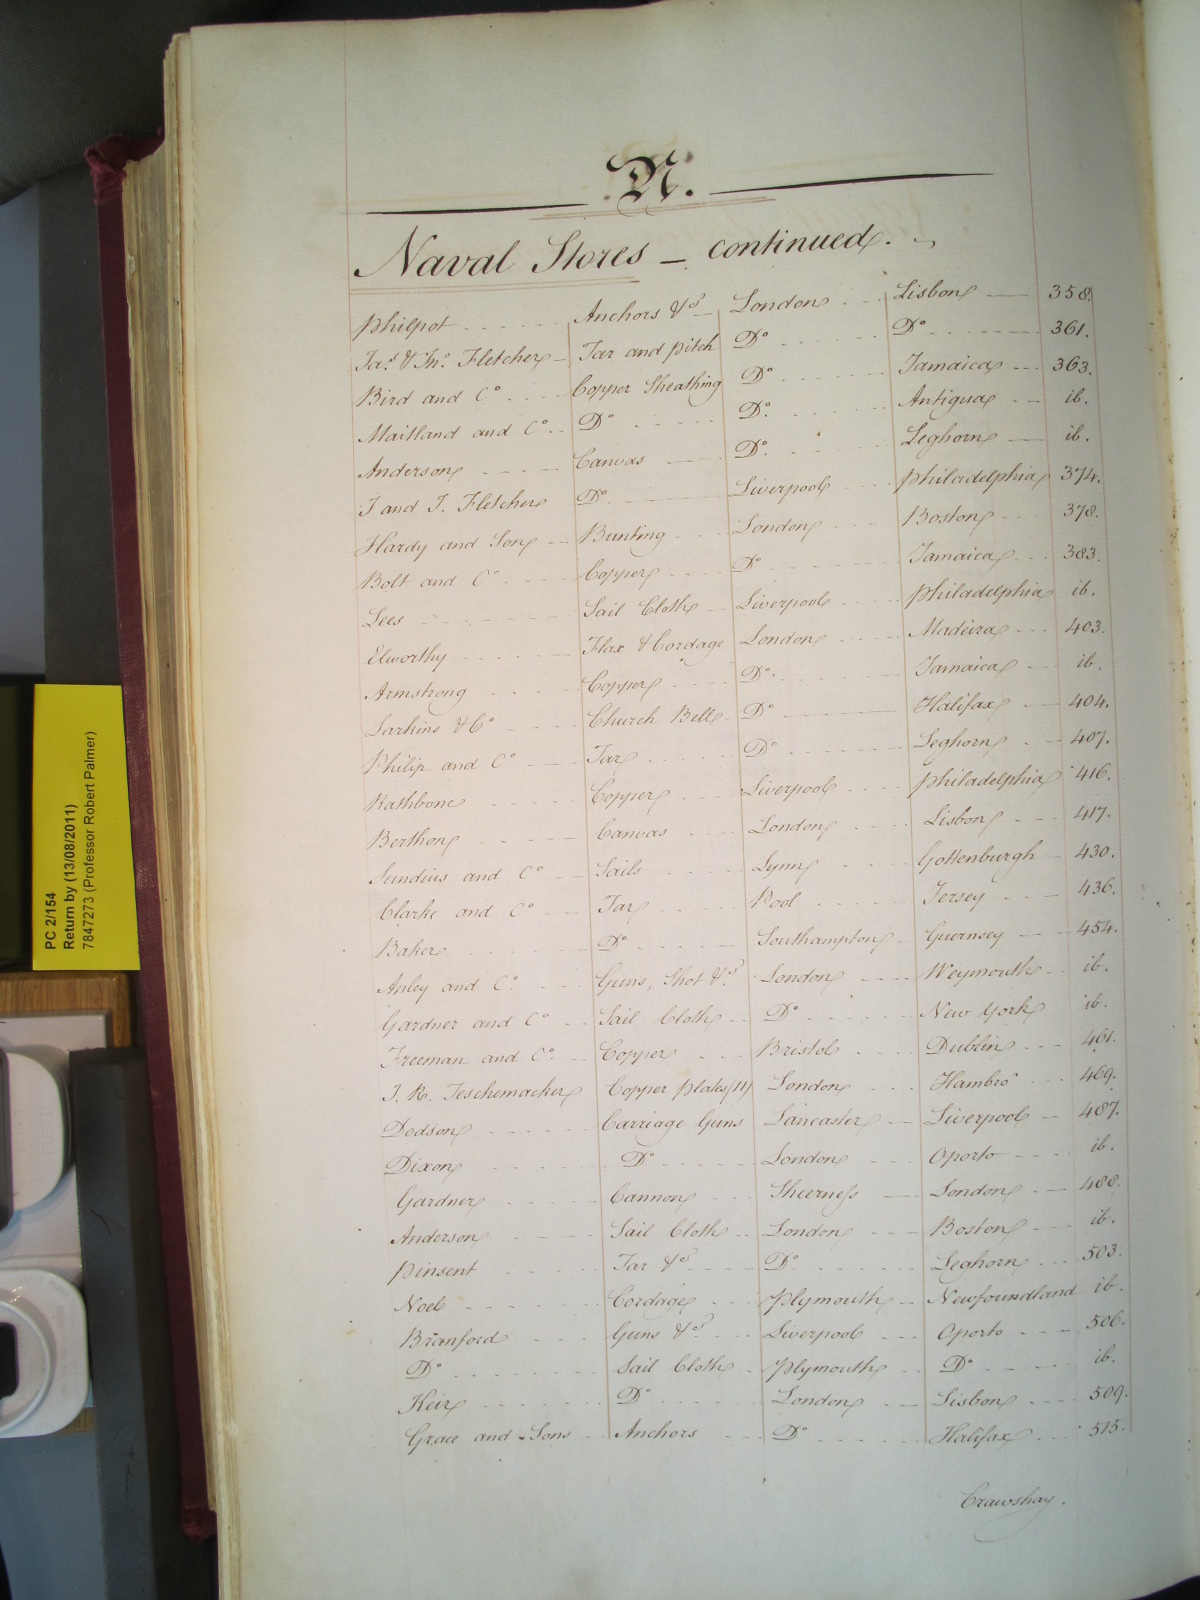 N.
Naval Stores – continued.
Philpot Anchors &c London Lisbon 358.
Jas. & Jno. Fletcher Tar and Pitch Do Do 361.
Bird and Co Copper Sheathing Do Jamaica 363.
Maitland and Co Do Do. Antigua ib.
Anderson Canvas Do. Leghorn ib.
J and T. Fletcher Do Liverpool Philadelphia 374.
Hardy and Son Bunting London Boston 378.
Bolt and Co Copper Do Jamaica 383.
Lees Sail Cloth Liverpool Philadelphia ib.
Elworthy Flax & Cordage London Madeira 403.
Armstrong Copper Do. Jamaica ib.
Larkins & Co Church Bell Do Halifax 404.
Philip and Co Tar Do Leghorn 407.
Rathbone Copper Liverpool Philadelphia 416.
Berthon Canvas London Lisbon 417.
Sundius and Co Sails Lynn Gottenburgh 430.
Clarke and Co Tar Pool Jersey 436.
Baker Do Southampton Guernsey 454.
Anley and Co. Guns, Shot &c. London Weymouth ib.
Gardner and Co Sail Cloth Do New York ib.
Freeman and Co. Copper Bristol Dublin 461.
J. R. Teschemacker Copper Plates (11) London Hambro 469.
Dodson Carriage Guns Lancaster Liverpool 487.
Dixon Do London Oporto ib.
Gardner Cannon Sheerness London 488.
Anderson Sail Cloth London Boston ib.
Pinsent Tar &c Do. Leghorn 503.
Noel Cordage Plymouth Newfoundland ib.
Branford Guns &c Liverpool Oporto 506.
Do Sail Cloth Plymouth Do ib.
Keir Do London Lisbon 509.
Grace and Sons Anchors Do Halifax 515.
Crawshay.
PC 2/154
Return by (13/08/2011)
7847273 (Professor Robert Palmer)